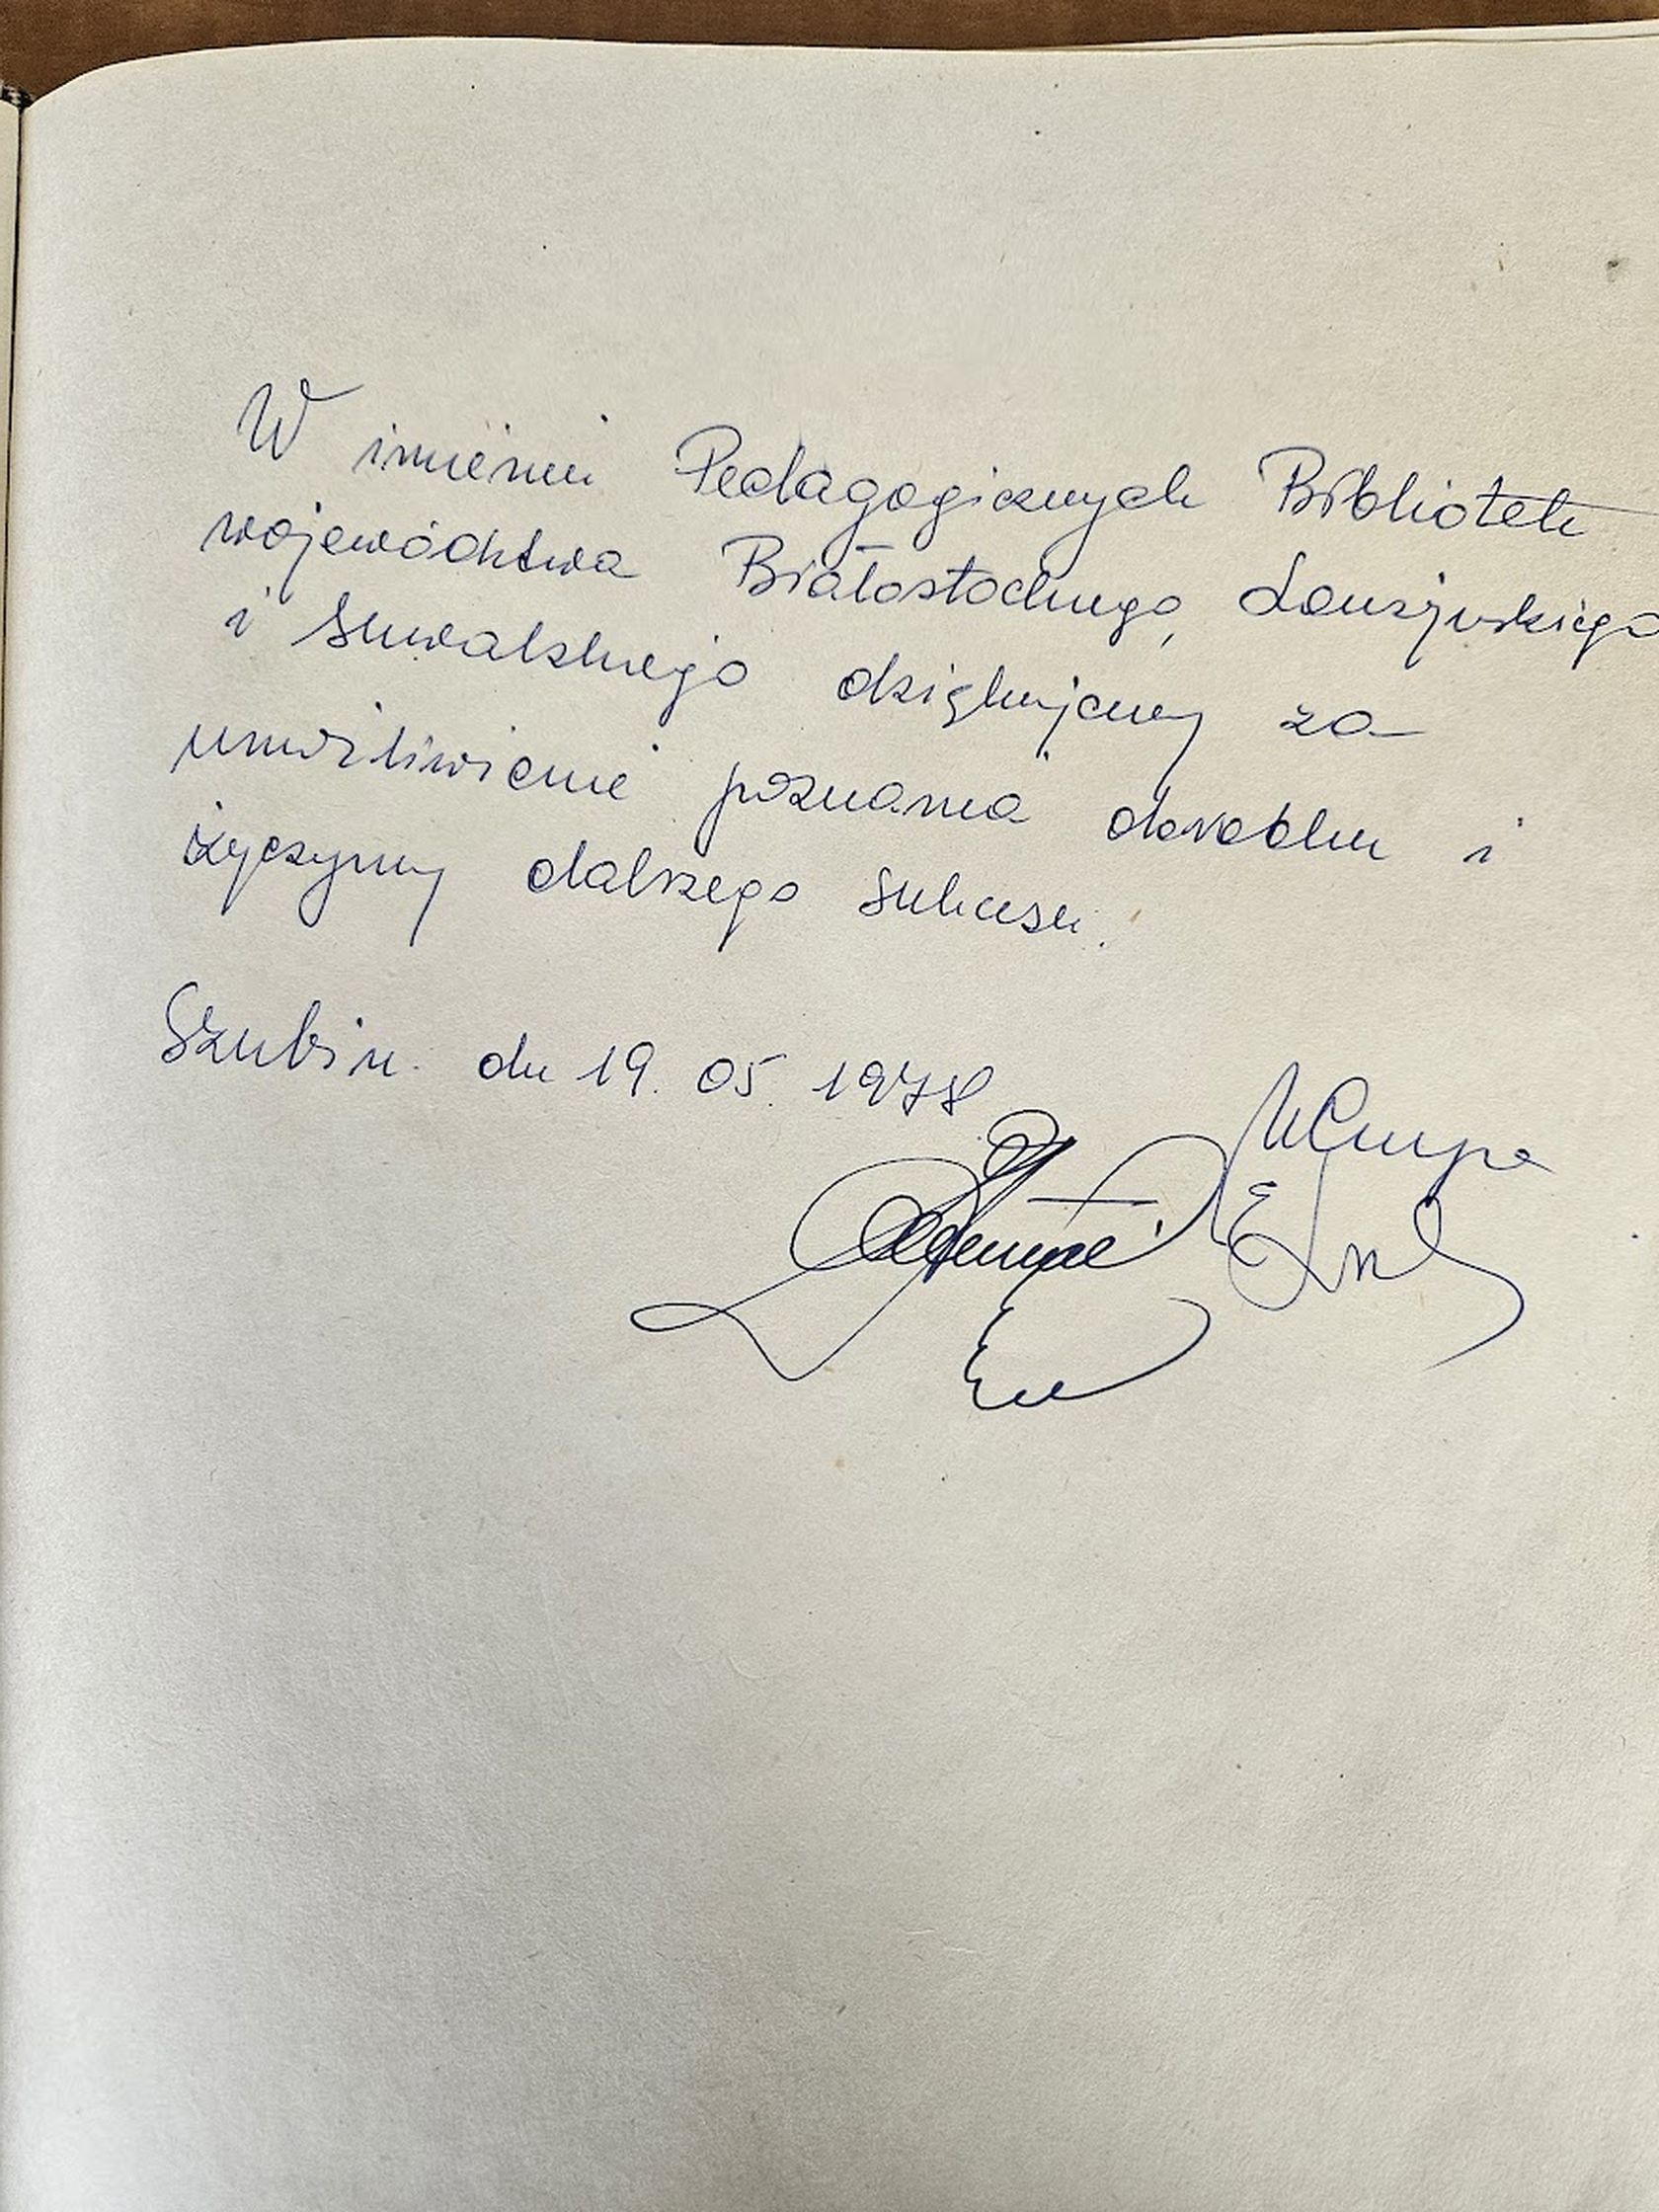 W imieniu Pedagogicznych Bibliotek
województwa Białostockiego, Łomżyńskiego
i Suwalskiego dziękujemy za
umożliwienie poznania dorobku i
życzymy dalszego sukcesu.
Szubin. dn 19. 05. 1978